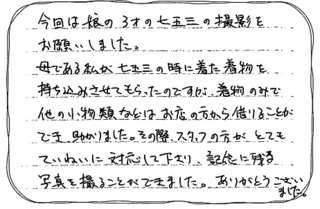 今回は娘の3才の七五三の撮影を
お願いしました。
母である私が七五三の時に着た着物を
持ち込みさせてもらったのですが、着物のみで
他の小物類などはお店の方から借りることが
でき、助かりました。その際、スタッフの方が とても
ていねいに 対応して下さり、記念に残る
写真を撮ることができました。ありがとうござい
ました。